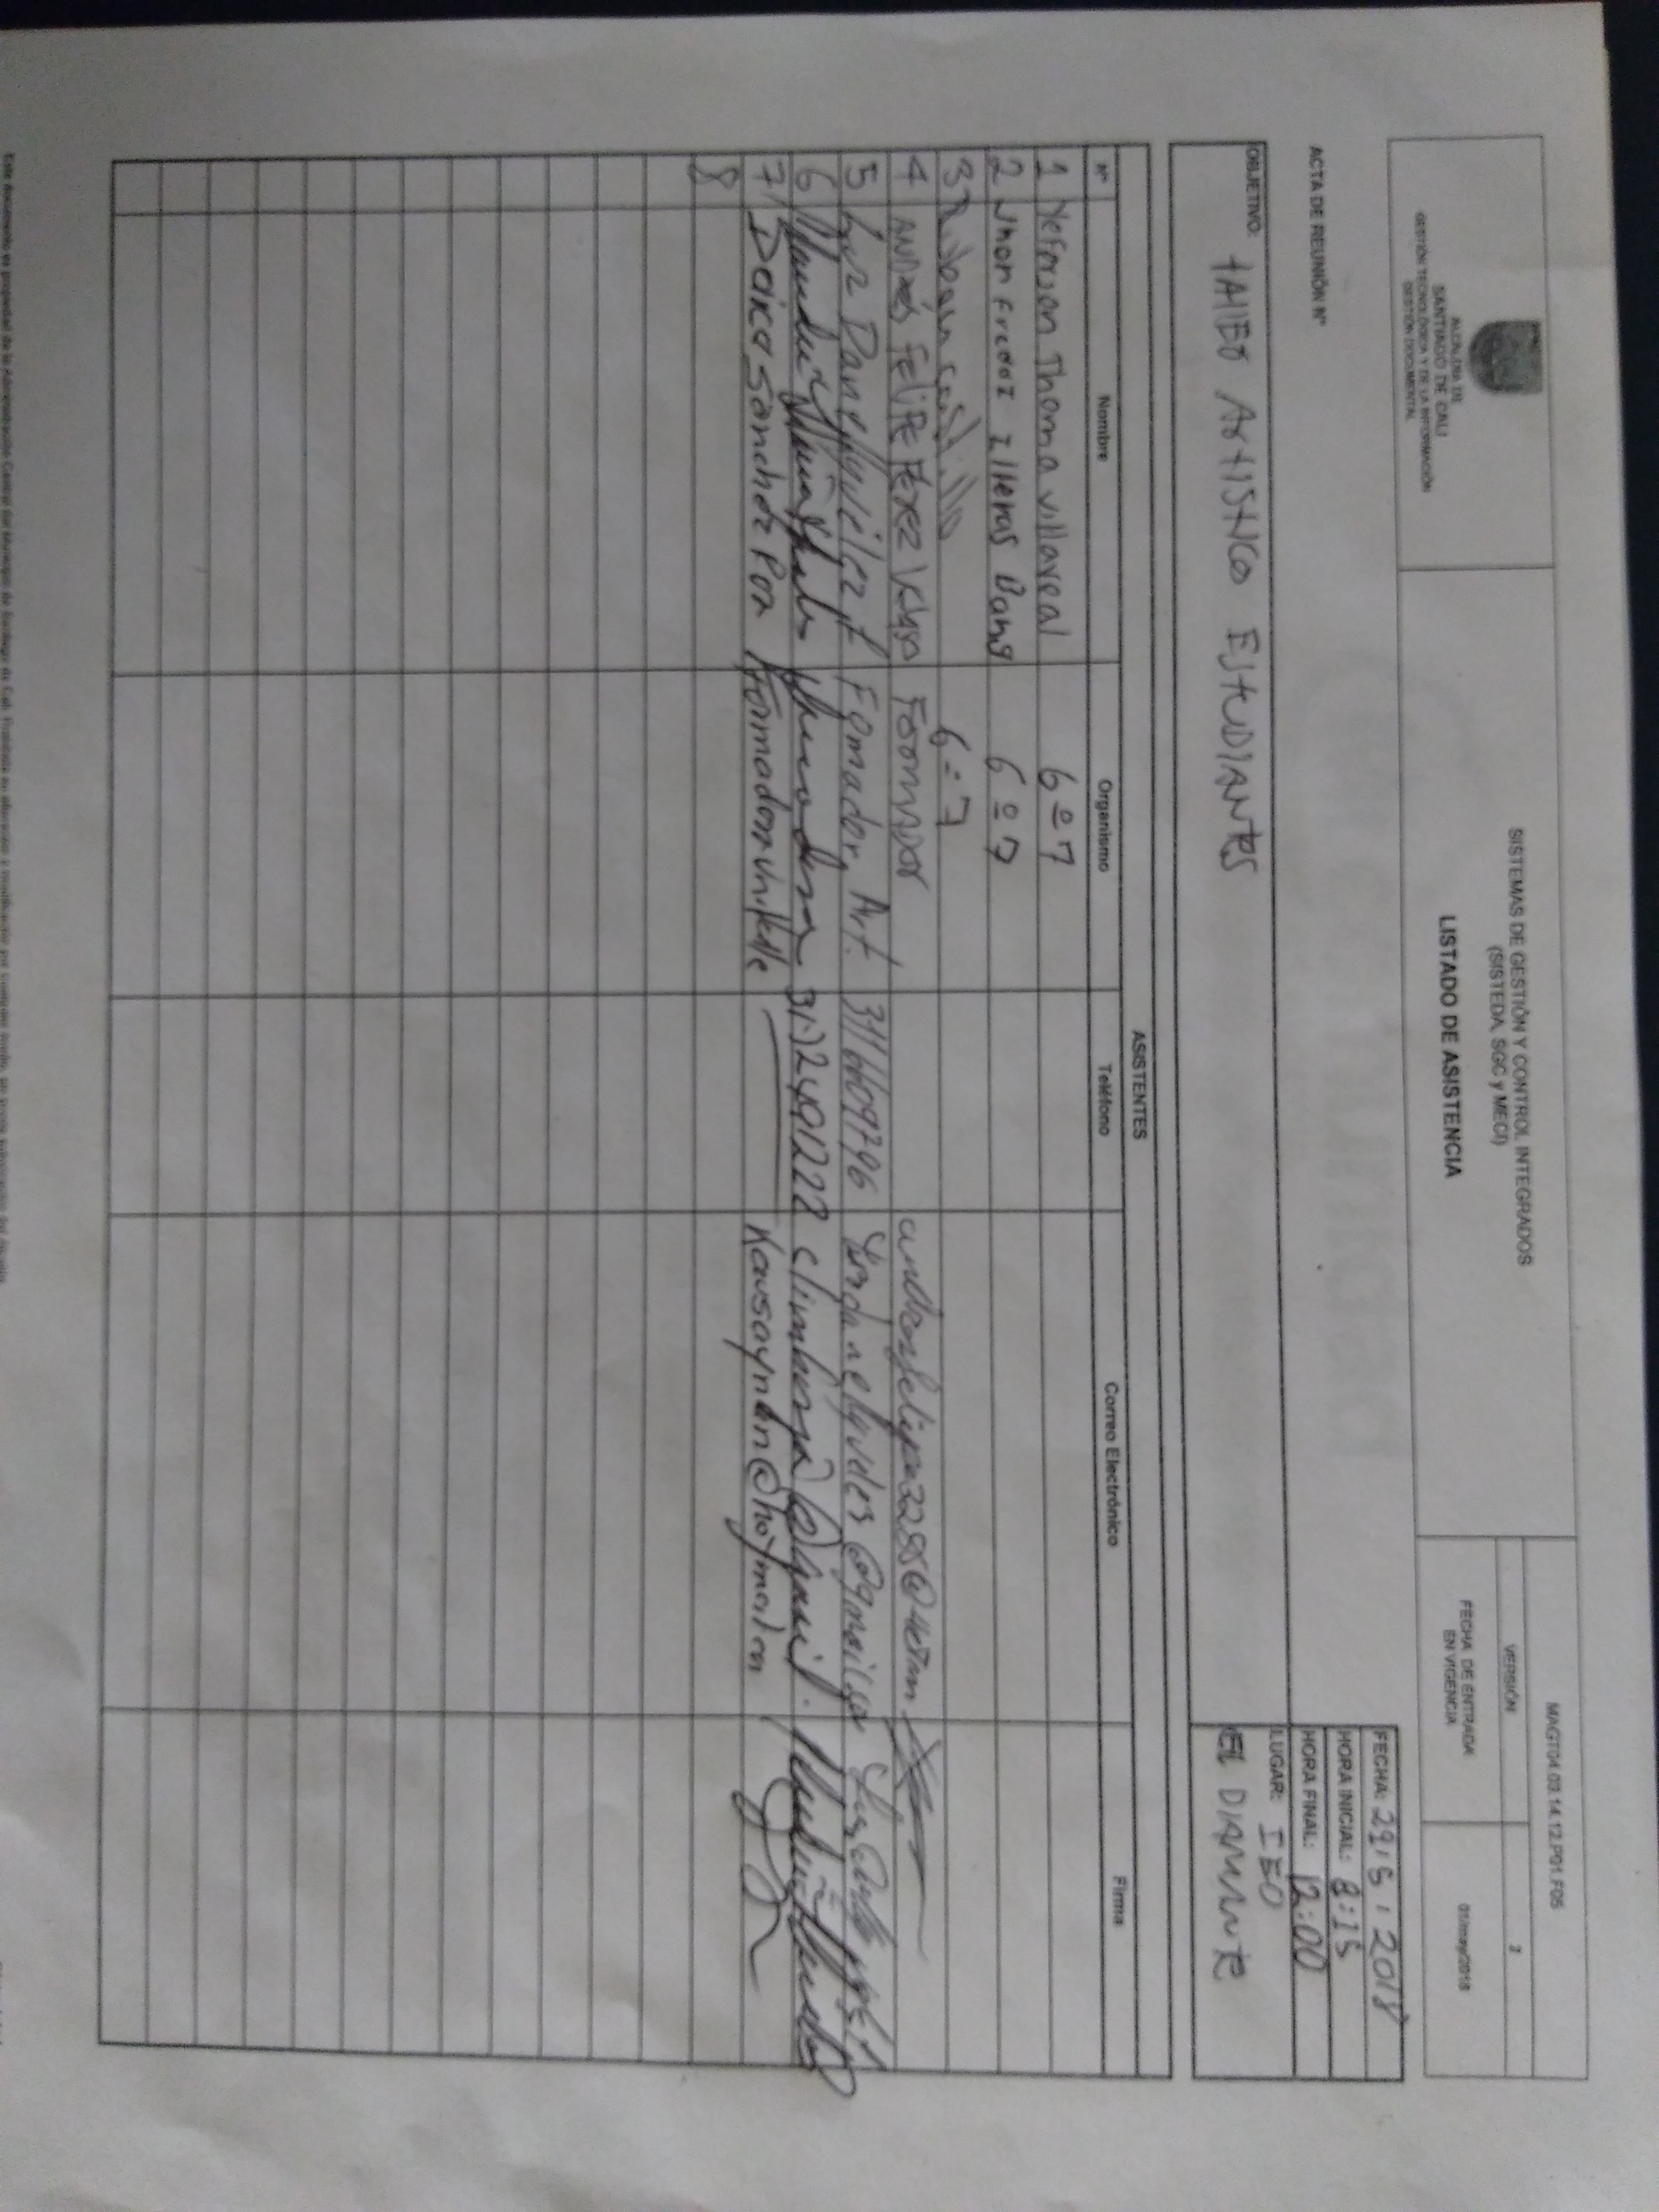 ALCALDÍA DE
SANTIAGO DE CALI
GESTIÓN TECNOLÓGICA Y DE LA INFORMACIÓN
GESTIÓN DOCUMENTAL
SISTEMAS DE GESTIÓN Y CONTROL INTEGRADOS
(SISTEDA, SGC y MECI)
LISTADO DE ASISTENCIA
MAGT04.03.14.12.P01.F05
VERSIÓN 2
FECHA DE ENTRADA EN VIGENCIA 01/may/2018
FECHA: 29 : 5 : 2018
HORA INICIAL: 8:15
ACTA DE REUNIÓN N°
HORA FINAL: 12:00
LUGAR: IEO
EL DIAMANTE
OBJETIVO: tAllER ArtIStICO EStUDIANtES
ASISTENTES
N° Nombre Organismo Teléfono Correo Electrónico Firma
1 Yeferson Thoma Villareal 6º7
2 Jhon Illeras 6º7
3 castillo 6=7
4 ANDRÉS FELIPE PÉREZ Formador
5 Luz Danelly vélez f Fomador Art. 3116609796
6 @gmail.
7 Sanchez Formador Univalle
8
Este documento es propiedad de la Administración Central del Municipio de Santiago de Cali. Prohibida su alteración o modificación por cualquier medio, sin previa autorización del Alcalde.